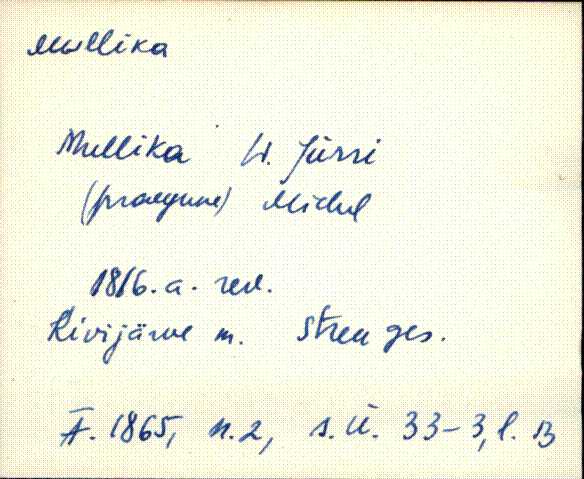 Mullika
Mullika W. Jürri
(praegune) Michel
1816. a. rev.
Kivijärve m.
F. 1865, n. 2, s. ü. 33-3, l. 13